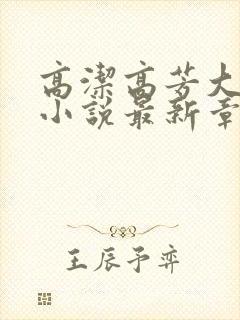 高潔高芳大
小說最新章
王辰予弈